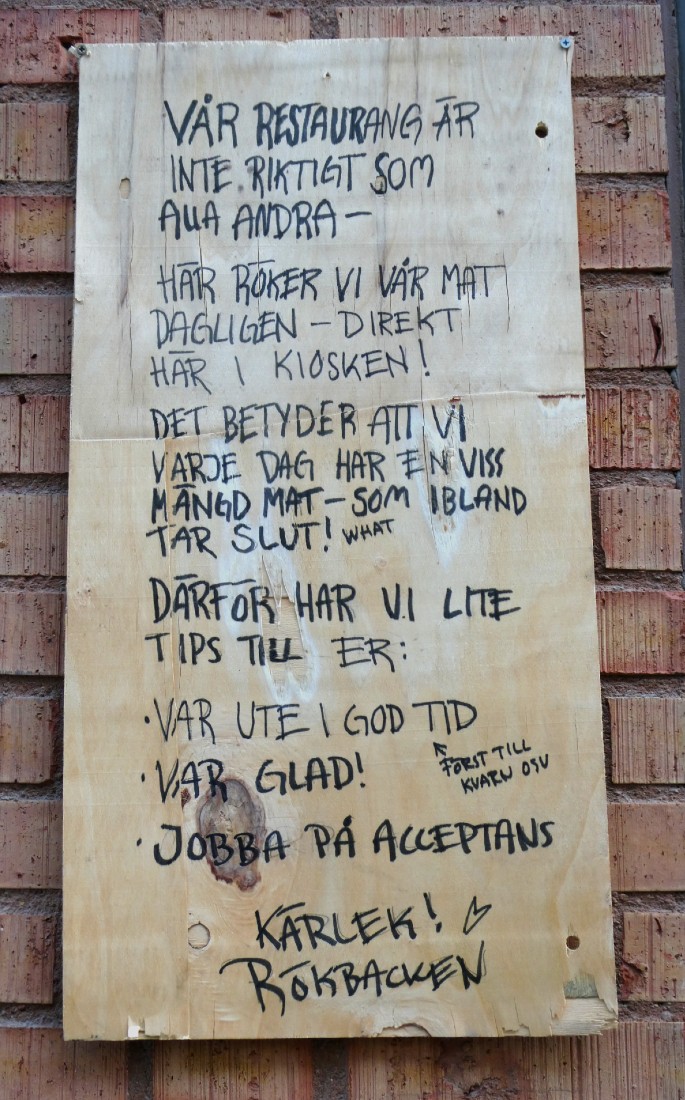 VÅR RESTAURANG ÄR
INTE RIKTIGT SOM
ALLA ANDRA –
HÄR RÖKER VI VÅR MAT
DAGLIGEN – DIREKT
HÄR I KIOSKEN!
DET BETYDER ATT VI
VARJE DAG HAR EN VISS
MÄNGD MAT – SOM IBLAND
TAR SLUT! WHAT
DÄRFÖR HAR VI LITE
TIPS TILL ER:
· VAR UTE I GOD TID
FÖRST TILL
KVARN OSV
· VAR GLAD!
· JOBBA PÅ ACCEPTANS
KÄRLEK! ♡
RÖKBACKEN